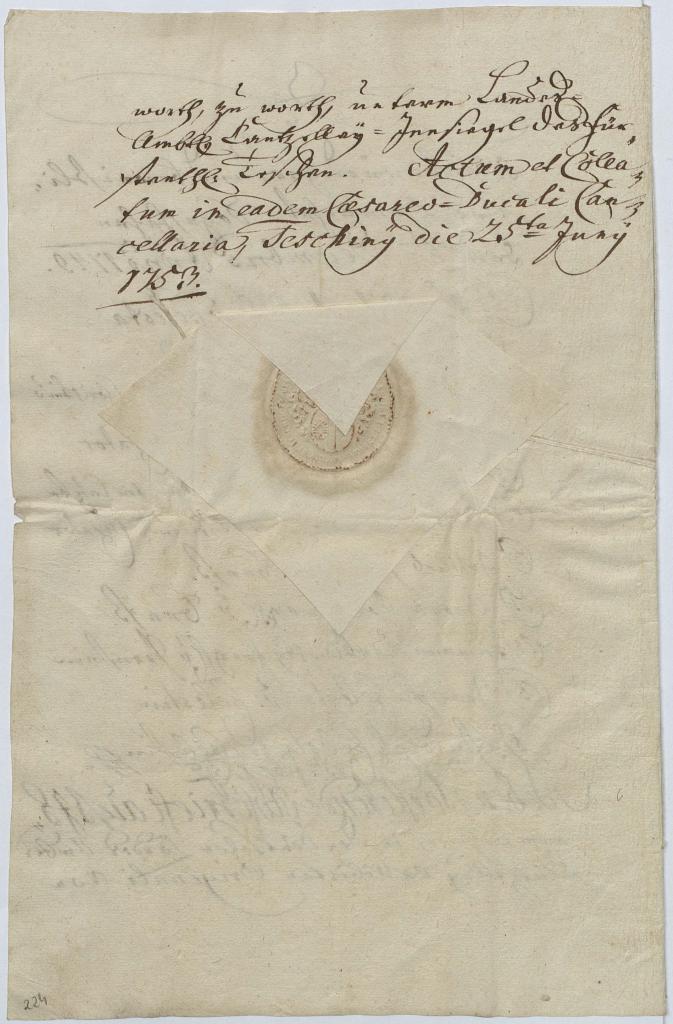 worth, zu worth, unterm Landes-
Ambts Cantzelleÿ-Innsiegel des Für-
stenth: Teschen. Actum et Colla-
tum in eadem Cæsareo-Ducali Can-
cellaria, Teschinÿ die 25ta Junÿ
1753.
224